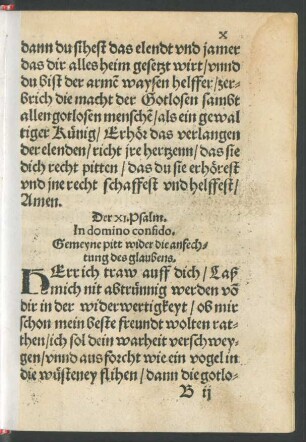 x
dann du sihest das elendt vnd jamer
das dir alles heim gesetzt wirt/vnnd
du bist der armē waysen helffer/zer-
brich die macht der Gotlosen sambt
allen gotlosen menschē/als ein gewal
tiger Künig/Erhör das verlangen
der elenden/richt jre hertzenn/das sie
dich recht pitten/das du sie erhörest
vnd jne recht schaffest vnd helffest/
Amen.
Der XI. Psalm.
In domino confido.
Gemeyne pitt wider die anfech-
tung des glaubens.
HErr ich traw auff dich/Laß
mich nit abtrünnig werden vō
dir in der widerwertigkeyt/ob mir
schon mein beste freundt wolten rat-
then/ich sol dein warheit verschwey-
gen/vnnd aus forcht wie ein vogel in
die wüsteney flihen/dann die gotlo-
B ij